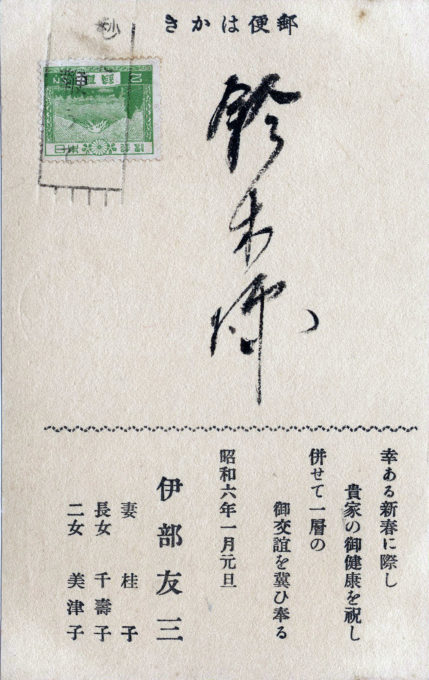 郵便はかき
鈴木様
幸ある新春に際し
貴家の御健康を祝し
併せて一層の
御交誼を冀ひ奉る
昭和六年一月元旦
伊部友三
妻 桂子
長女 千壽子
二女 美津子